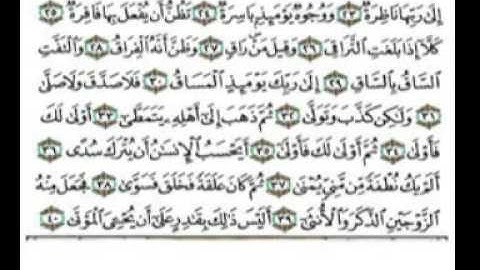 إِلَىٰ رَبِّهَا نَاظِرَةٌ ٢٣ وَوُجُوهٌ يَوْمَئِذٍۭ بَاسِرَةٌ ٢٤ تَظُنُّ أَن يُفْعَلَ بِهَا فَاقِرَةٌ ٢٥
كَلَّآ إِذَا بَلَغَتِ ٱلتَّرَاقِيَ ٢٦ وَقِيلَ مَنْۜ رَاقٍ ٢٧ وَظَنَّ أَنَّهُ ٱلْفِرَاقُ ٢٨ وَٱلْتَفَّتِ
ٱلسَّاقُ بِٱلسَّاقِ ٢٩ إِلَىٰ رَبِّكَ يَوْمَئِذٍ ٱلْمَسَاقُ ٣٠ فَلَا صَدَّقَ وَلَا صَلَّىٰ
٣١ وَلَٰكِن كَذَّبَ وَتَوَلَّىٰ ٣٢ ثُمَّ ذَهَبَ إِلَىٰٓ أَهْلِهِۦ يَتَمَطَّىٰٓ ٣٣ أَوْلَىٰ لَكَ
فَأَوْلَىٰ ٣٤ ثُمَّ أَوْلَىٰ لَكَ فَأَوْلَىٰٓ ٣٥ أَيَحْسَبُ ٱلْإِنسَٰنُ أَن يُتْرَكَ سُدًى ٣٦
أَلَمْ يَكُ نُطْفَةً مِّن مَّنِىٍّ يُمْنَىٰ ٣٧ ثُمَّ كَانَ عَلَقَةً فَخَلَقَ فَسَوَّىٰ ٣٨ فَجَعَلَ مِنْهُ
ٱلزَّوْجَيْنِ ٱلذَّكَرَ وَٱلْأُنثَىٰٓ ٣٩ أَلَيْسَ ذَٰلِكَ بِقَٰدِرٍ عَلَىٰٓ أَن يُحْـِۧىَ ٱلْمَوْتَىٰ ٤٠